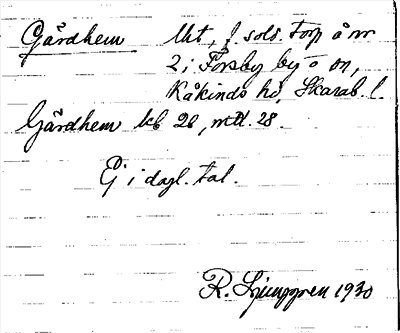 Gårdhem Uht, f. sols. torp å nr
2 i Forsby by o sn,
Kåkinds hd, Skarab. l.
Gårdhem kb 26, mtl. 28.
Ej i dagl. tal.
R. Ljunggren 1930